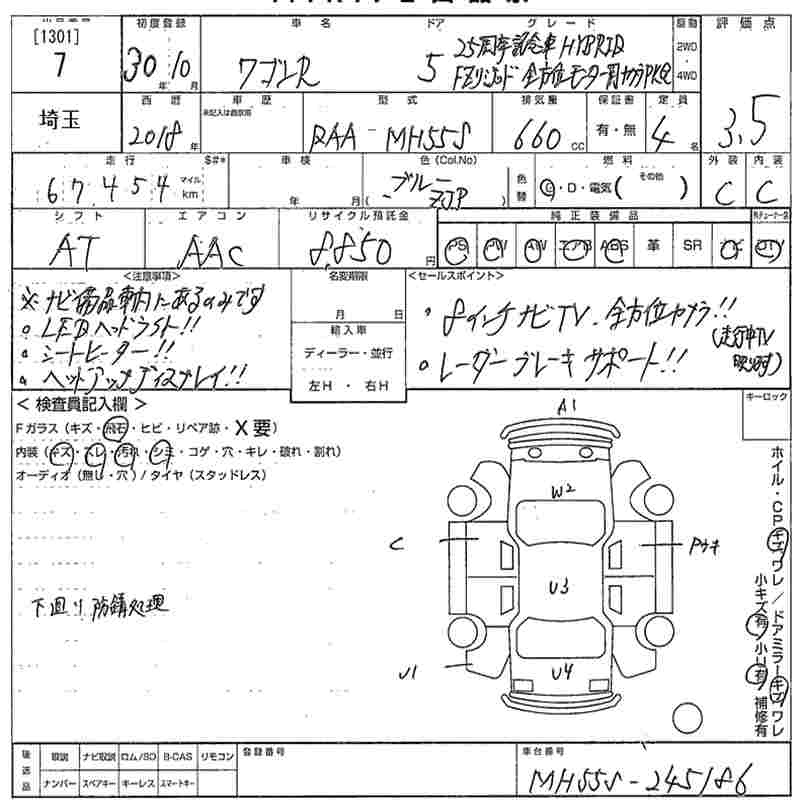 [1301]
7
初度登録
30年10月
車名
ワゴンR
ドア
5
グレード
25周年記念車 HYBRID
FZリミテッド 全方位モニター用カメラPKG
駆動
2WD
・
4WD
評価点
3.5
埼玉
西暦
2018年
車歴
未記入は自家用
型式
DAA-MH55S
排気量
660cc
保証書
有・無
定員
4名
走行
67454
マイル
km
$#*
車検
年 月
色(Col.No)
ブルー
ZJP
色替
燃料
G・D・電気( その他 )
外装
C
内装
C
シフト
AT
エアコン
AAC
リサイクル預託金
8,850円
純正装備品
PS PW AW エアB ABS 革 SR ナビ TV
<注意事項>
※ ナビ備品車内にあるのみです
。LEDヘッドライト!!
。シートヒーター!!
。ヘッドアップディスプレイ!!
名変期限
月 日
輸入車
ディーラー・並行
左H・右H
<セールスポイント>
。8インチナビTV、全方位カメラ!!
(走行中TV映ります)
。レーダーブレーキサポート!!
<検査員記入欄>
Fガラス(キズ・飛石・ヒビ・リペア跡・X要)
内装(キズ・スレ・汚れ・シミ・コゲ・穴・キレ・破れ・割れ)
オーディオ(無し・穴)/タイヤ(スタッドレス)
下回り防錆処理
A1
W2
C
U3
U1
U4
キーロック
ホイル・CPキズワレ/ドアミラーキズワレ
小キズ有 小U有 補修有
後送品
取説 ナビ取説 ロム/SD B-CAS リモコン
ナンバー スペアキー キーレス スマートキー
登録番号
車台番号
MH55S-245186